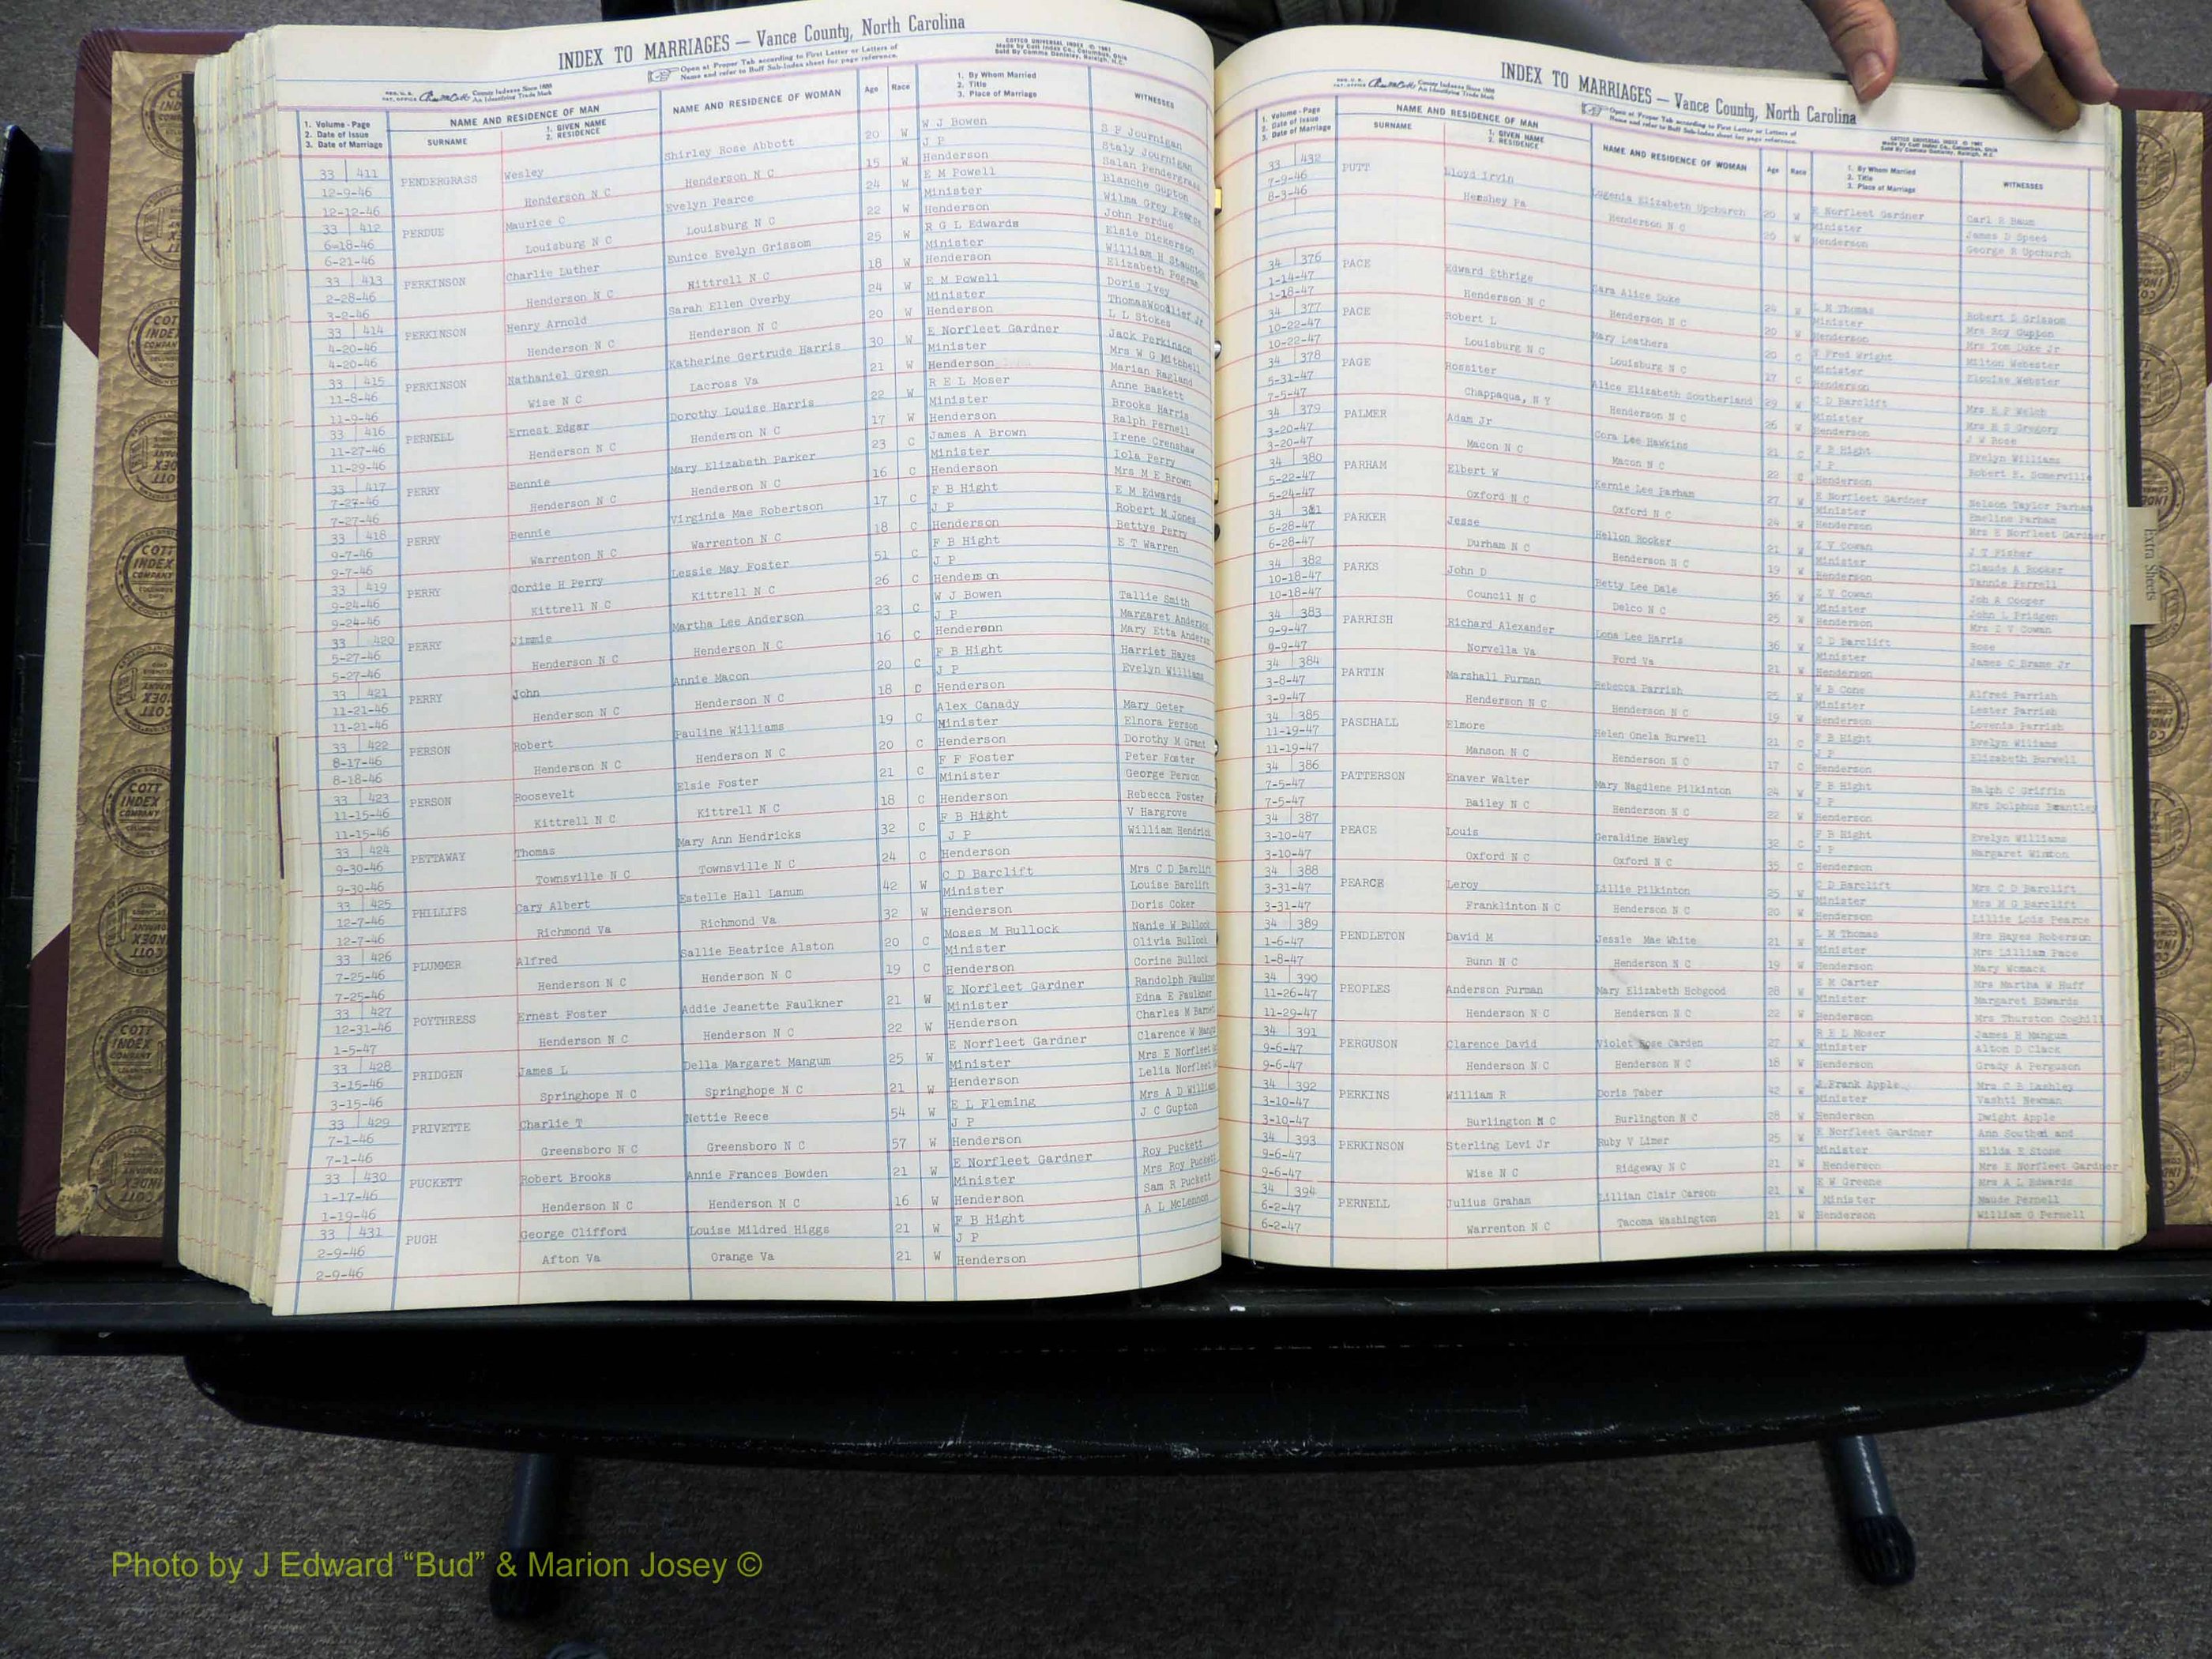 INDEX TO MARRIAGES — Vance County, North Carolina
Open at Proper Tab according to First Letter or Letters of
Name and refer to Buff Sub-Index sheet for page reference.
1. Volume - Page
2. Date of Issue
3. Date of Marriage
NAME AND RESIDENCE OF MAN
SURNAME
1. GIVEN NAME
2. RESIDENCE
NAME AND RESIDENCE OF WOMAN
Age Race
1. By Whom Married
2. Title
3. Place of Marriage
WITNESSES
33 411 PENDERGRASS Wesley Shirley Rose Abbott 20 W W J Bowen S F Journigan
12-9-46 Henderson N C Henderson N C 15 W J P Staly Journigan
12-12-46 Henderson Salan Pendergrass
33 412 PERDUE Maurice C Evelyn Pearce 24 W E M Powell Blanche Gupton
6-18-46 Louisburg N C Louisburg N C 22 W Minister Wilma Grey Pearce
6-21-46 Henderson John Perdue
33 413 PERKINSON Charlie Luther Eunice Evelyn Grissom 25 W R G L Edwards Elsie Dickerson
2-28-46 Henderson N C Kittrell N C 18 W Minister William H
3-2-46 Henderson Elizabeth Pegram
33 414 PERKINSON Henry Arnold Sarah Ellen Overby 24 W E M Powell Doris Ivey
4-20-46 Henderson N C Henderson N C 20 W Minister
4-20-46 Henderson L L Stokes
33 415 PERKINSON Nathaniel Green Katherine Gertrude Harris 30 W E Norfleet Gardner Jack Perkinson
11-8-46 Wise N C Lacross Va 21 W Minister Mrs W G Mitchell
11-9-46 Henderson Marian Ragland
33 416 PERNELL Ernest Edgar Dorothy Louise Harris 22 W R E L Moser Anne Baskett
11-27-46 Henderson N C Henderson N C 17 W Minister Brooks Harris
11-29-46 Henderson Ralph Pernell
33 417 PERRY Bennie Mary Elizabeth Parker 23 C James A Brown Irene Crenshaw
7-27-46 Henderson N C Henderson N C 16 C Minister Iola Perry
7-27-46 Henderson Mrs M E Brown
33 418 PERRY Bennie Virginia Mae Robertson 17 C F B Hight E M Edwards
9-7-46 Warrenton N C Warrenton N C 18 C J P Robert M Jones
9-7-46 Henderson Bettye Perry
33 419 PERRY Gordie H Perry Lessie May Foster 51 C F B Hight E T Warren
9-24-46 Kittrell N C Kittrell N C 26 C J P
9-24-46 Henderson
33 420 PERRY Jimmie Martha Lee Anderson 23 C W J Bowen Tallie Smith
5-27-46 Henderson N C Henderson N C 16 C J P Margaret Anderson
5-27-46 Henderson Mary Etta Anderso
33 421 PERRY John Annie Macon 20 C F B Hight Harriet Hayes
11-21-46 Henderson N C Henderson N C 18 C J P Evelyn Williams
11-21-46 Henderson
33 422 PERSON Robert Pauline Williams 19 C Alex Canady Mary Geter
8-17-46 Henderson N C Henderson N C 20 C Minister Elnora Person
8-18-46 Henderson Dorothy M Grant
33 423 PERSON Roosevelt Elsie Foster 21 C F F Foster Peter Foster
11-15-46 Kittrell N C Kittrell N C 18 C Minister George Person
11-15-46 Henderson Rebecca Foster
33 424 PETTAWAY Thomas Mary Ann Hendricks 32 C F B Hight V Hargrove
9-30-46 Townsville N C Townsville N C 24 C J P William Hendric
9-30-46 Henderson
33 425 PHILLIPS Cary Albert Estelle Hall Lanum 42 W C D Barclift Mrs C D Barclift
12-7-46 Richmond Va Richmond Va 32 W Minister Louise Barclift
12-7-46 Henderson Doris Coker
33 426 PLUMMER Alfred Sallie Beatrice Alston 20 C Moses M Bullock Nanie W Bullock
7-25-46 Henderson N C Henderson N C 19 C Minister Olivia Bullock
7-25-46 Henderson Corine Bullock
33 427 POYTHRESS Ernest Foster Addie Jeanette Faulkner 21 W E Norfleet Gardner Randolph Faulkne
12-31-46 Henderson N C Henderson N C 22 W Minister Edna E Faulkner
1-5-47 Henderson Charles M
33 428 PRIDGEN James L Della Margaret Mangum 25 W E Norfleet Gardner Clarence W
3-15-46 Springhope N C Springhope N C 21 W Minister Mrs E Norfleet
3-15-46 Henderson Lelia Norfleet
33 429 PRIVETTE Charlie T Nettie Reece 54 W E L Fleming Mrs A D William
7-1-46 Greensboro N C Greensboro N C 57 W J P J C Gupton
7-1-46 Henderson
33 430 PUCKETT Robert Brooks Annie Frances Bowden 21 W E Norfleet Gardner Roy Puckett
1-17-46 Henderson N C Henderson N C 16 W Minister Mrs Roy Puckett
1-19-46 Henderson Sam R Puckett
33 431 PUGH George Clifford Louise Mildred Higgs 21 W F B Hight A L McLennon
2-9-46 Afton Va Orange Va 21 W J P
2-9-46 Henderson
INDEX TO MARRIAGES — Vance County, North Carolina
Open at Proper Tab according to First Letter or Letters of
Name and refer to Buff Sub-Index sheet for page reference.
1. Volume - Page
2. Date of Issue
3. Date of Marriage
NAME AND RESIDENCE OF MAN
SURNAME
1. GIVEN NAME
2. RESIDENCE
NAME AND RESIDENCE OF WOMAN
Age Race
1. By Whom Married
2. Title
3. Place of Marriage
WITNESSES
33 432 PUTT Lloyd Irvin Eugenia Elizabeth Upchurch 20 W E Norfleet Gardner Carl R Baum
7-9-46 Hershey Pa Henderson N C 26 W Minister James D Speed
8-3-46 Henderson George R Upchurch
34 376 PACE Edward Ethrige Sara Alice Duke 24 W L M Thomas Robert D Grissom
1-14-47 Henderson N C Henderson N C 20 W Minister Mrs Roy Gupton
1-18-47 Henderson Mrs Tom Duke Jr
34 377 PACE Robert L Mary Leathers 20 C S Fred Wright Milton Webester
10-22-47 Louisburg N C Louisburg N C 17 C Minister Elouise Webster
10-22-47 Henderson
34 378 PAGE Rossiter Alice Elizabeth Southerland 29 W C D Barclift Mrs E P Welch
5-31-47 Chappaqua, N Y Henderson N C 26 W Minister Mrs E S Gregory
7-5-47 Henderson J W Rose
34 379 PALMER Adam Jr Cora Lee Hawkins 21 C F B Hight Evelyn Williams
3-20-47 Macon N C Macon N C 22 C J P Robert E. Somerville
3-20-47 Henderson
34 380 PARHAM Elbert W Kernie Lee Parham 27 W E Norfleet Gardner Nelson Taylor Parham
5-22-47 Oxford N C Oxford N C 24 W Minister Emeline Parham
5-24-47 Henderson Mrs E Norfleet Gardner
34 381 PARKER Jesse Hellon Hooker 21 W Z V Cowan J T Fisher
6-28-47 Durham N C Henderson N C 19 W Minister Claude A Hooker
6-28-47 Henderson Vannie Ferrell
34 382 PARKS John D Betty Lee Dale 36 W Z V Cowan Joh R Cooper
10-18-47 Council N C Delco N C 25 W Minister John L Pridgen
10-18-47 Henderson Mrs Z V Cowan
34 383 PARRISH Richard Alexander Lona Lee Harris 36 W C D Barclift Rose
9-9-47 Norvella Va Ford Va 21 W Minister James C Brame Jr
9-9-47 Henderson
34 384 PARTIN Marshall Furman Rebecca Parrish 25 W W B Cone Alfred Parrish
3-8-47 Henderson N C Henderson N C 19 W Minister Lester Parrish
3-9-47 Henderson Lovenia Parrish
34 385 PASCHALL Elmore Helen Onela Burwell 21 C F B Hight Evelyn Wiliams
11-19-47 Manson N C Henderson N C 17 C J P Elizabeth Burwell
11-19-47 Henderson
34 386 PATTERSON Enaver Walter Mary Nagdlene Pilkinton 24 W F B Hight Ralph C Griffin
7-5-47 Bailey N C Henderson N C 22 W J P Mrs Dolphus Brantley
7-5-47 Henderson
34 387 PEACE Louis Geraldine Hawley 32 C F B Hight Evelyn Williams
3-10-47 Oxford N C Oxford N C 35 C J P Margaret Winston
3-10-47 Henderson
34 388 PEARCE Leroy Lillie Pilkinton 25 W C D Barclift Mrs C D Barclift
3-31-47 Franklinton N C Henderson N C 20 W Minister Mrs H G Barclift
3-31-47 Henderson Lillie Lois Pearce
34 389 PENDLETON David M Jessie Mae White 21 W L M Thomas Mrs Hayes Roberson
1-6-47 Bunn N C Henderson N C 19 W Minister Mrs Lillian Pace
1-8-47 Henderson Mary Womack
34 390 PEOPLES Anderson Furman Mary Elizabeth Hobgood 28 W E R Carter Mrs Martha W Huff
11-26-47 Henderson N C Henderson N C 22 W Minister Margaret Edwards
11-29-47 Henderson Mrs Thurston Coghill
34 391 PERGUSON Clarence David Violet Rose Carden 27 W R E L Moser James H Mangum
9-6-47 Henderson N C Henderson N C 18 W Minister Alton D Clack
9-6-47 Henderson Grady A Ferguson
34 392 PERKINS William R Doris Taber 42 W J Frank Apple Mrs C B Lashley
3-10-47 Burlington N C Burlington N C 28 W Minister Vashti Newman
3-10-47 Henderson Dwight Apple
34 393 PERKINSON Sterling Levi Jr Ruby V Limer 25 W E Norfleet Gardner Ann Southerl and
9-6-47 Wise N C Ridgeway N C 21 W Minister Hilda E Stone
9-6-47 Henderson Mrs E Norfleet Gardner
34 394 PERNELL Julius Graham Lillian Clair Carson 21 W E W Greene Mrs A L Edwards
6-2-47 Warrenton N C Tacoma Washington 21 W Minister Maude Pernell
6-2-47 Henderson William G Pernell
Extra Sheets
Photo by J Edward “Bud” & Marion Josey ©